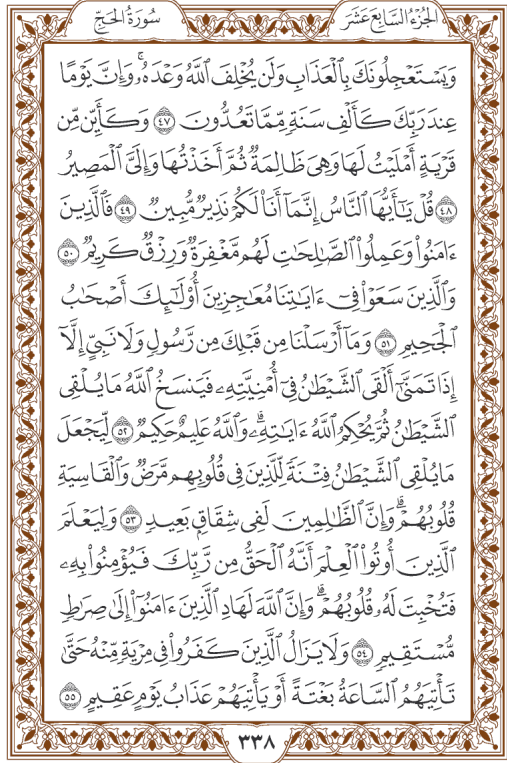 الجُزْءُ السَّابِعَ عَشَرَ
سُورَةُ الحَجِّ
وَيَسْتَعْجِلُونَكَ بِٱلْعَذَابِ وَلَن يُخْلِفَ ٱللَّهُ وَعْدَهُۥۚ وَإِنَّ يَوْمًا
عِندَ رَبِّكَ كَأَلْفِ سَنَةٍ مِّمَّا تَعُدُّونَ ٤٧ وَكَأَيِّن مِّن
قَرْيَةٍ أَمْلَيْتُ لَهَا وَهِىَ ظَالِمَةٌ ثُمَّ أَخَذْتُهَا وَإِلَىَّ ٱلْمَصِيرُ
٤٨ قُلْ يَٰٓأَيُّهَا ٱلنَّاسُ إِنَّمَآ أَنَا۠ لَكُمْ نَذِيرٌ مُّبِينٌ ٤٩ فَٱلَّذِينَ
ءَامَنُوا۟ وَعَمِلُوا۟ ٱلصَّٰلِحَٰتِ لَهُم مَّغْفِرَةٌ وَرِزْقٌ كَرِيمٌ ٥٠
وَٱلَّذِينَ سَعَوْا۟ فِىٓ ءَايَٰتِنَا مُعَٰجِزِينَ أُو۟لَٰٓئِكَ أَصْحَٰبُ
ٱلْجَحِيمِ ٥١ وَمَآ أَرْسَلْنَا مِن قَبْلِكَ مِن رَّسُولٍ وَلَا نَبِىٍّ إِلَّآ
إِذَا تَمَنَّىٰٓ أَلْقَى ٱلشَّيْطَٰنُ فِىٓ أُمْنِيَّتِهِۦ فَيَنسَخُ ٱللَّهُ مَا يُلْقِى
ٱلشَّيْطَٰنُ ثُمَّ يُحْكِمُ ٱللَّهُ ءَايَٰتِهِۦۗ وَٱللَّهُ عَلِيمٌ حَكِيمٌ ٥٢ لِّيَجْعَلَ
مَا يُلْقِى ٱلشَّيْطَٰنُ فِتْنَةً لِّلَّذِينَ فِى قُلُوبِهِم مَّرَضٌ وَٱلْقَاسِيَةِ
قُلُوبُهُمْۗ وَإِنَّ ٱلظَّٰلِمِينَ لَفِى شِقَاقٍۭ بَعِيدٍ ٥٣ وَلِيَعْلَمَ
ٱلَّذِينَ أُوتُوا۟ ٱلْعِلْمَ أَنَّهُ ٱلْحَقُّ مِن رَّبِّكَ فَيُؤْمِنُوا۟ بِهِۦ
فَتُخْبِتَ لَهُۥ قُلُوبُهُمْۗ وَإِنَّ ٱللَّهَ لَهَادِ ٱلَّذِينَ ءَامَنُوٓا۟ إِلَىٰ صِرَٰطٍ
مُّسْتَقِيمٍ ٥٤ وَلَا يَزَالُ ٱلَّذِينَ كَفَرُوا۟ فِى مِرْيَةٍ مِّنْهُ حَتَّىٰ
تَأْتِيَهُمُ ٱلسَّاعَةُ بَغْتَةً أَوْ يَأْتِيَهُمْ عَذَابُ يَوْمٍ عَقِيمٍ ٥٥
٣٣٨